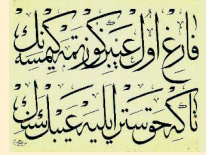 فارغ اول عيبن كورتمه كيمسه نك
تا كه حق ستر ايليه عيبك سنك